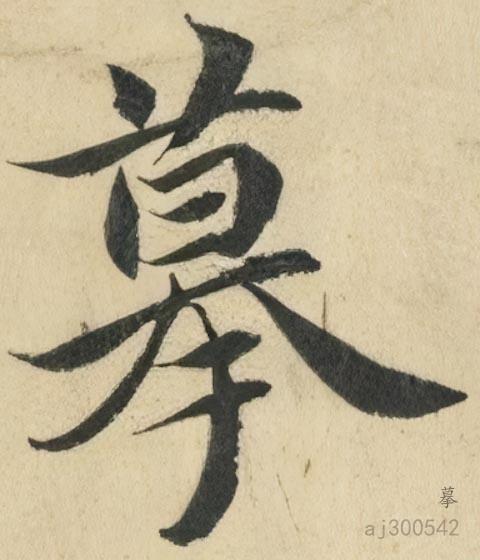 摹
摹
aj300542